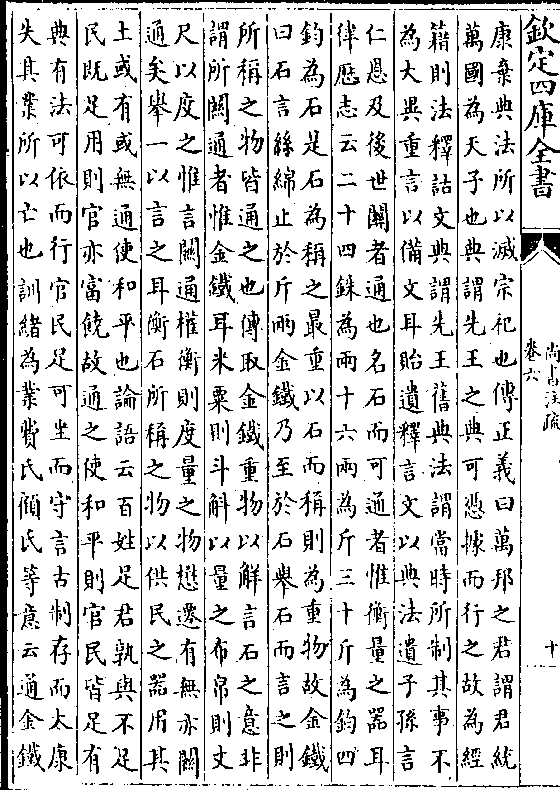 欽定四庫全書
尚書注疏
卷六
十
康棄典法所以滅宗祀也傳正義曰萬邦之君謂君統
萬國為天子也典謂先王之典可憑據而行之故為經
籍則法釋詁文典謂先王舊典法謂當時所制其事不
為大異重言以備文耳貽遺釋言文以典法遺子孫言
仁恩及後世關者通也名石而可通者惟衡量之器耳
律歷志云二十四銖為兩十六兩為斤三十斤為鈞四
鈞為石是石為稱之最重以石而稱則為重物故金鐵
曰石言絲綿止於斤兩金鐵乃至於石舉石而言之則
所稱之物皆通之也傳取金鐵重物以解言石之意非
謂所關通者惟金鐵耳米粟則斗斛以量之布帛則丈
尺以度之惟言關通權衡則度量之物懋遷有無亦關
通矣舉一以言之耳衡石所稱之物以供民之器用其
土或有或無通使和平也論語云百姓足君孰與不足
民既足用則官亦富饒故通之使和平則官民皆足有
典有法可依而行官民足可坐而守言古制存而太康
失其業所以亡也訓緒為業費氏顧氏等意云通金鐵